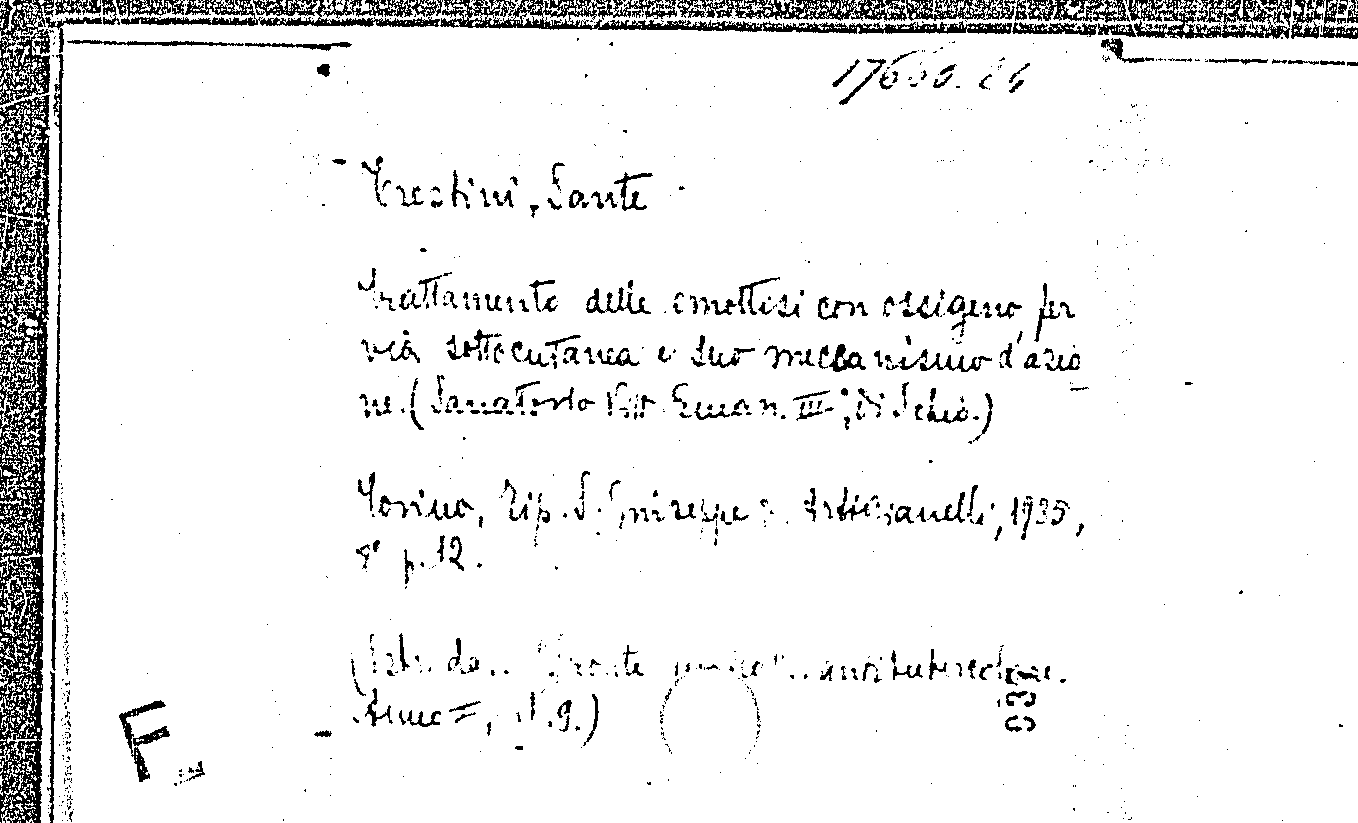 Trestini, Sante
Trattamento delle emottisi con ossigeno per
via sottocutanea e suo meccanismo d'azio
ne. (Sanatorio Vitt. Eman. III, di Schio.)
Torino, Tip. S. Giuseppe Artigianelli, 1935,
8° p. 12.
(Estr. da antitubercolare.
Anno 9.)
F